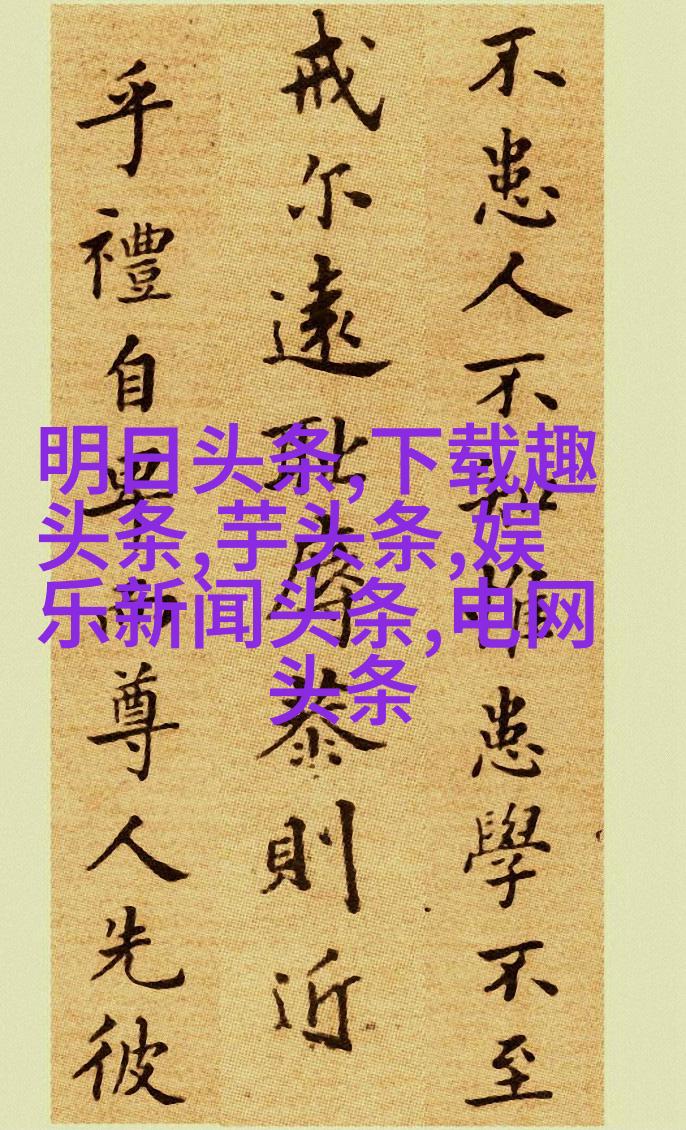 不患人不知惟患學不至
戒尔遠恥辱恭則近
乎禮自卑而尊人先彼
明日头条,下载趣
头条,芋头条,娱
乐新闻头条,电网
头条